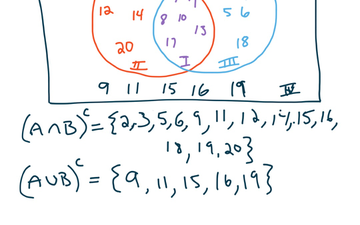 12 14 8 10 5 6
20 17 13 18
II I III
9 11 15 16 19 IV
(A∩B)ᶜ = {2,3,5,6,9,11,12,14,15,16,
18,19,20}
(A∪B)ᶜ = {9,11,15,16,19}